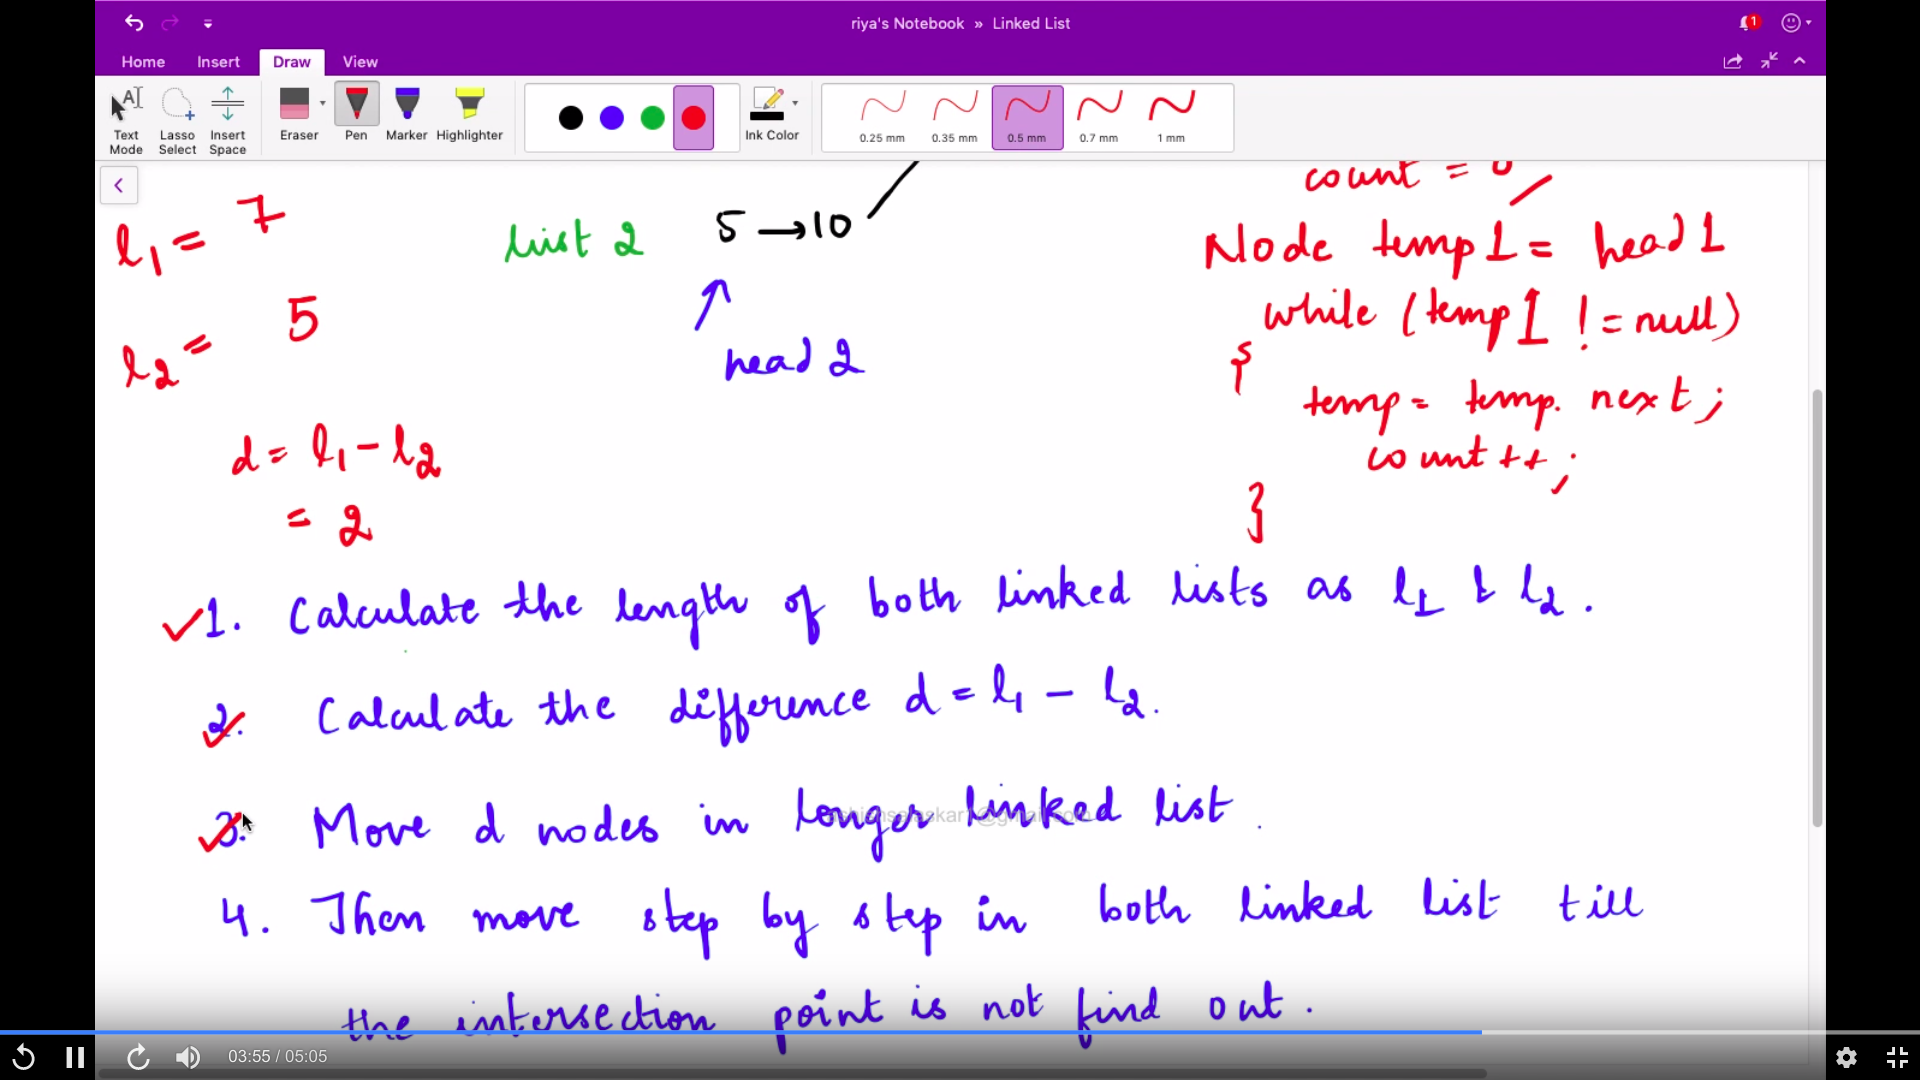 riya's Notebook » Linked List
1
Home Insert Draw View
Text Mode
Lasso Select
Insert Space
Eraser
Pen
Marker
Highlighter
Ink Color
0.25 mm
0.35 mm
0.5 mm
0.7 mm
1 mm
l1 = 7
l2 = 5
d = l1 - l2
= 2
list 2 5 → 10
head 2
count = 0
Node temp1 = head 1
while (temp1 != null)
{
temp = temp. next ;
count ++ ;
}
1. Calculate the length of both linked lists as l1 & l2 .
2. Calculate the difference d = l1 - l2 .
3. Move d nodes in longer linked list .
4. Then move step by step in both linked list till
the intersection point is not find out .
03:55 / 05:05